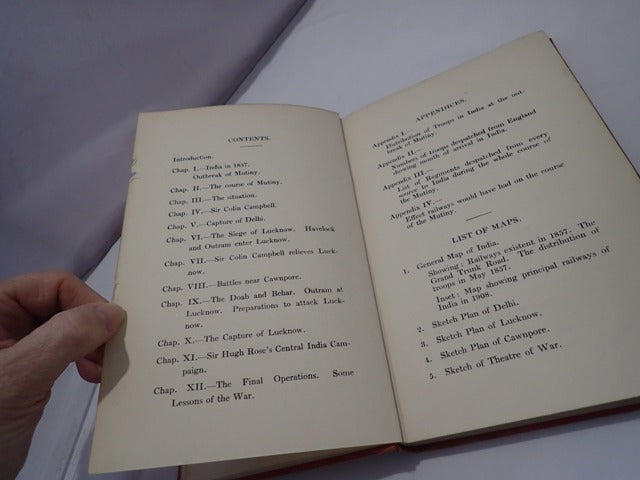 CONTENTS.
Introduction.
Chap. I.—India in 1857.
Outbreak of Mutiny.
Chap. II.—The course of Mutiny.
Chap. III.—The situation.
Chap. IV.—Sir Colin Campbell.
Chap. V.—Capture of Delhi.
Chap. VI.—The Siege of Lucknow. Havelock
and Outram enter Lucknow.
Chap. VII.—Sir Colin Campbell relieves Luck-
now.
Chap. VIII.—Battles near Cawnpore.
Chap. IX.—The Doab and Behar. Outram at
Lucknow. Preparations to attack Luck-
now.
Chap. X.—The Capture of Lucknow.
Chap. XI.—Sir Hugh Rose's Central India Cam-
paign.
Chap. XII.—The Final Operations. Some
Lessons of the War.
APPENDICES.
Appendix I.—
Distribution of Troops in India at the out-
break of Mutiny.
Appendix II.—
Numbers of troops despatched from England
showing month of arrival in India.
Appendix III.—
List of Regiments despatched from every
source to India during the whole course of
the Mutiny.
Appendix IV.—
Effect railways would have had on the course
of the Mutiny.
LIST OF MAPS.
1. General Map of India.
Showing: Railways existent in 1857. The
Grand Trunk Road. The distribution of
troops in May 1857.
Inset: Map showing principal railways of
India in 1908.
2. Sketch Plan of Delhi.
3. Sketch Plan of Lucknow.
4. Sketch Plan of Cawnpore.
5. Sketch of Theatre of War.